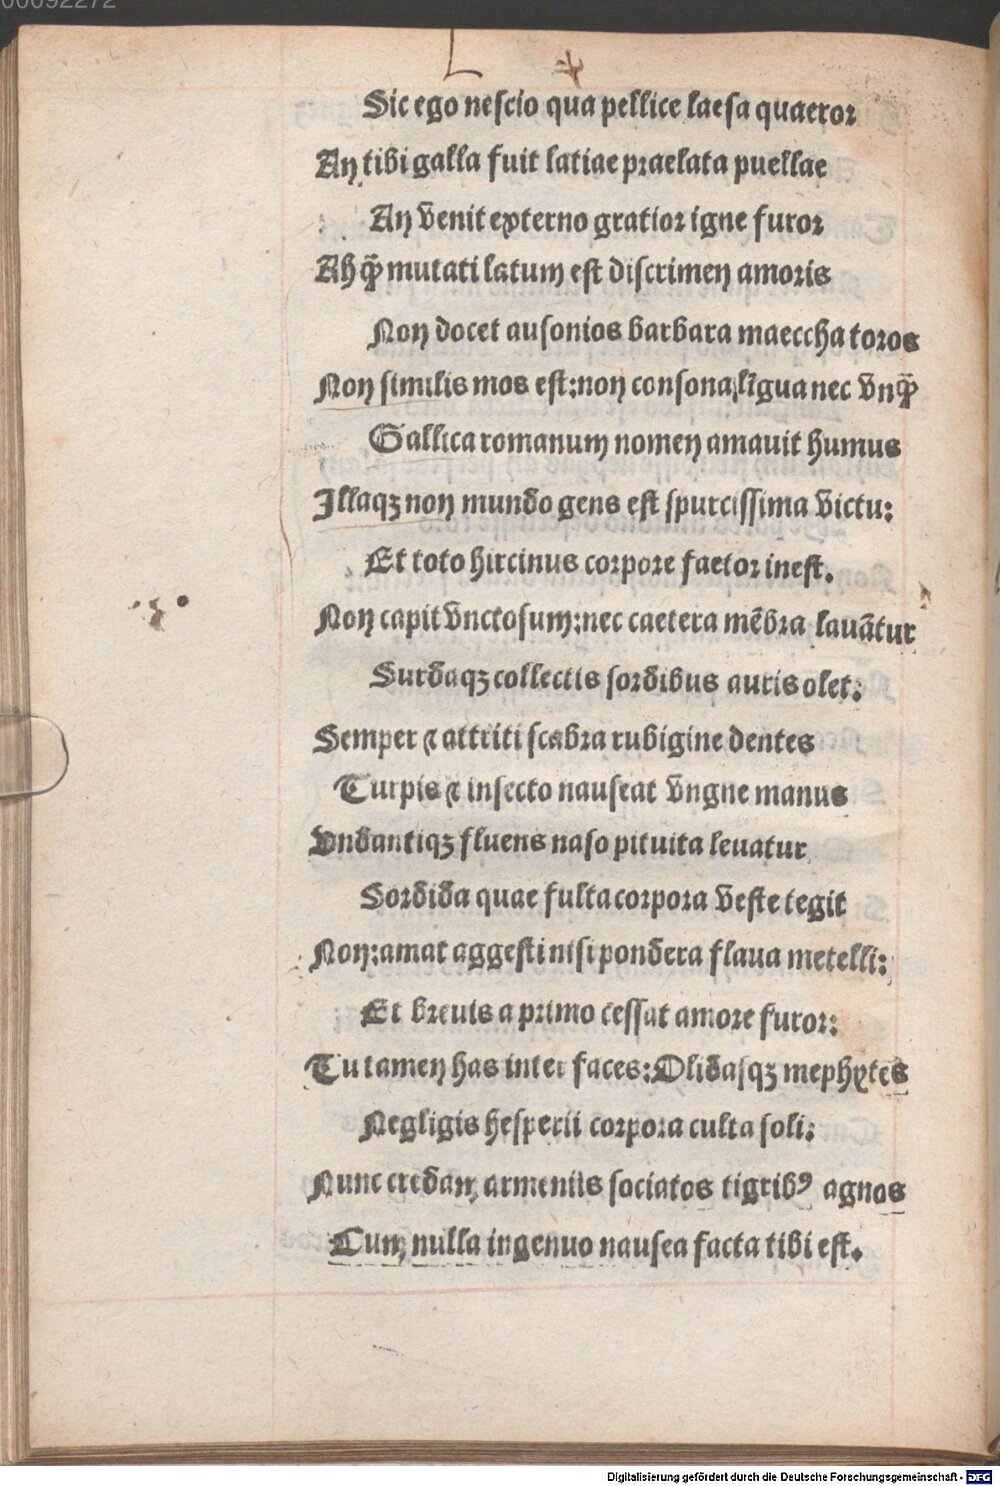 00092272
Sic ego nescio qua pellice laesa quaeror
An tibi galla fuit latiae praelata puellae
An venit externo gratior igne furor
Ah q̃ mutati latum est discrimen amoris
Non docet ausonios barbara maeccha toros
Non similis mos est: non consona lĩgua nec vnq̃
Gallica romanum nomen amauit humus
Illaqꝫ non mundo gens est spurcissima victu:
Et toto hircinus corpore faetor inest.
Non capit vnctosum: nec caetera mẽbra lauãtur
Surdaqꝫ collectis sordibus auris olet:
Semper ⁊ attriti scabra rubigine dentes
Turpis ⁊ insecto nauseat vngne manus
Vndantiqꝫ fluens naso pituita leuatur
Sordida quae fulta corpora veste tegit
Non: amat aggesti nisi pondera flaua metelli:
Et breuis a primo cessat amore furor:
Tu tamen has inter faces: Olidasqꝫ mephytes
Negligis hesperii corpora culta soli:
Nunc credam armeniis sociatos tigribꝰ agnos
Cum nulla ingenuo nausea facta tibi est.
Digitalisierung gefördert durch die Deutsche Forschungsgemeinschaft - DFG